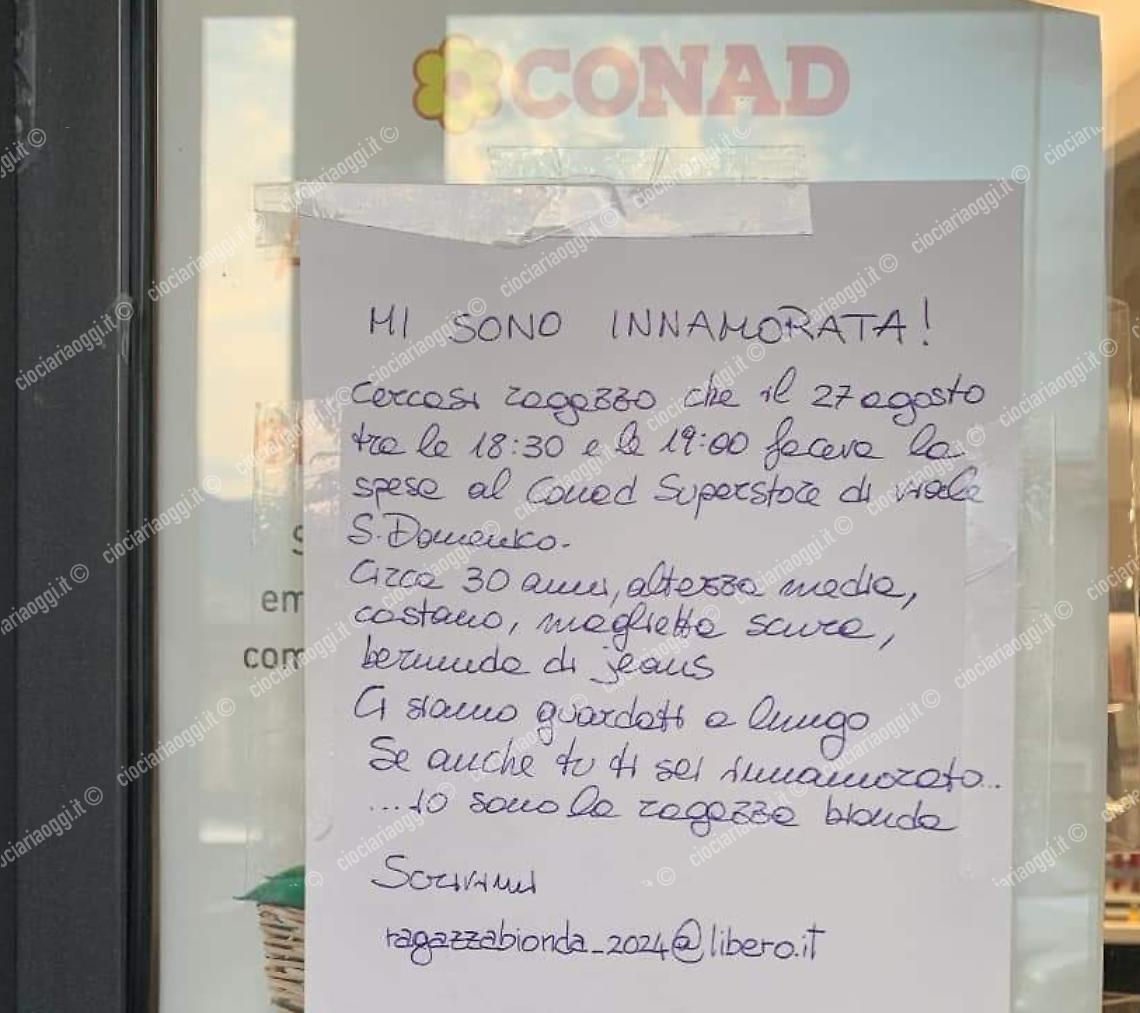 CONAD
MI SONO INNAMORATA!
Cercasi ragazzo che il 27 agosto
tra le 18:30 e le 19:00 faceva la
spesa al Conad Superstore di viale
S. Domenico.
Circa 30 anni, altezza media,
castano, maglietta scura,
bermuda di jeans
Ci siamo guardati a lungo
Se anche tu ti sei innamorato...
...io sono la ragazza bionda
Scrivimi
ragazzabionda_2024@libero.it
em
com
ciociariaoggi.it ©